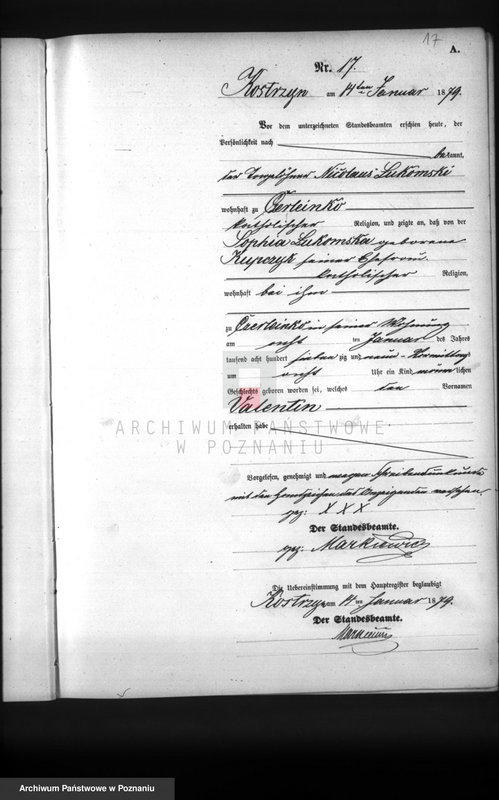 17
A.
Nr. 17.
Kostrzyn am 14ten Januar 1879.
Vor dem unterzeichneten Standesbeamten erschien heute, der
Persönlichkeit nach
bekannt,
der Tagelöhner Nicolaus Lukomski
wohnhaft zu Czerleinko
katholischer Religion, und zeigte an, daß von der
Sophia Lukomska geborene
Kupczyk seiner Ehefrau
katholischer Religion,
wohnhaft bei ihm
zu Czerleinko in seiner Wohnung
am acht ten Januar des Jahres
tausend acht hundert sieben zig und neun Vormittag
um acht Uhr ein Kind männlichen
Geschlechts geboren worden sei, welches den Vornamen
Valentin
erhalten habe
ARCHIWUM PAŃSTWOWE
W POZNANIU
Vorgelesen, genehmigt und wegen Schreibensunkunde
mit den Handzeichen des Anzeigenden versehen
gez. X X X
Der Standesbeamte.
gez. Markiewicz
Die Uebereinstimmung mit dem Hauptregister beglaubigt
Kostrzyn am 14ten Januar 1879.
Der Standesbeamte.
Archiwum Państwowe w Poznaniu